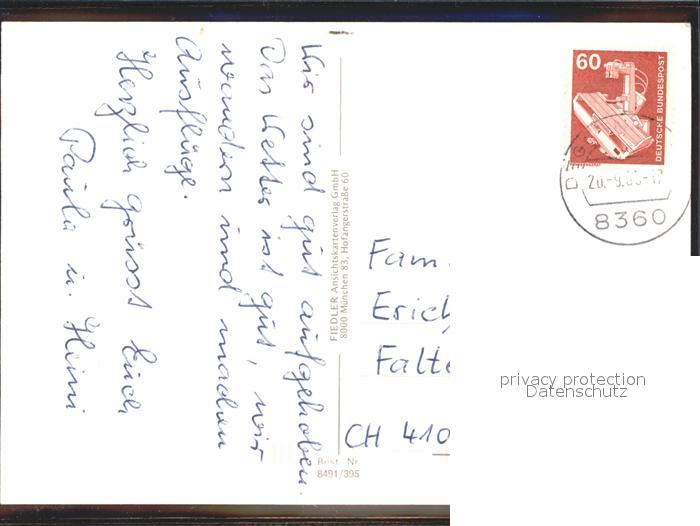 Wir sind gut aufgehoben.
Das Wetter ist gut, wir
wandern und machen
Ausflüge.
Herzlich grüsst Euch
Paula u. Heini
FIEDLER Ansichtskartenverlag GmbH
8000 München 83, Hofangerstraße 60
Best. Nr.
8491/395
60
DEUTSCHE BUNDESPOST
8360
Fam.
Erich
Falte
CH 410
privacy protection
Datenschutz